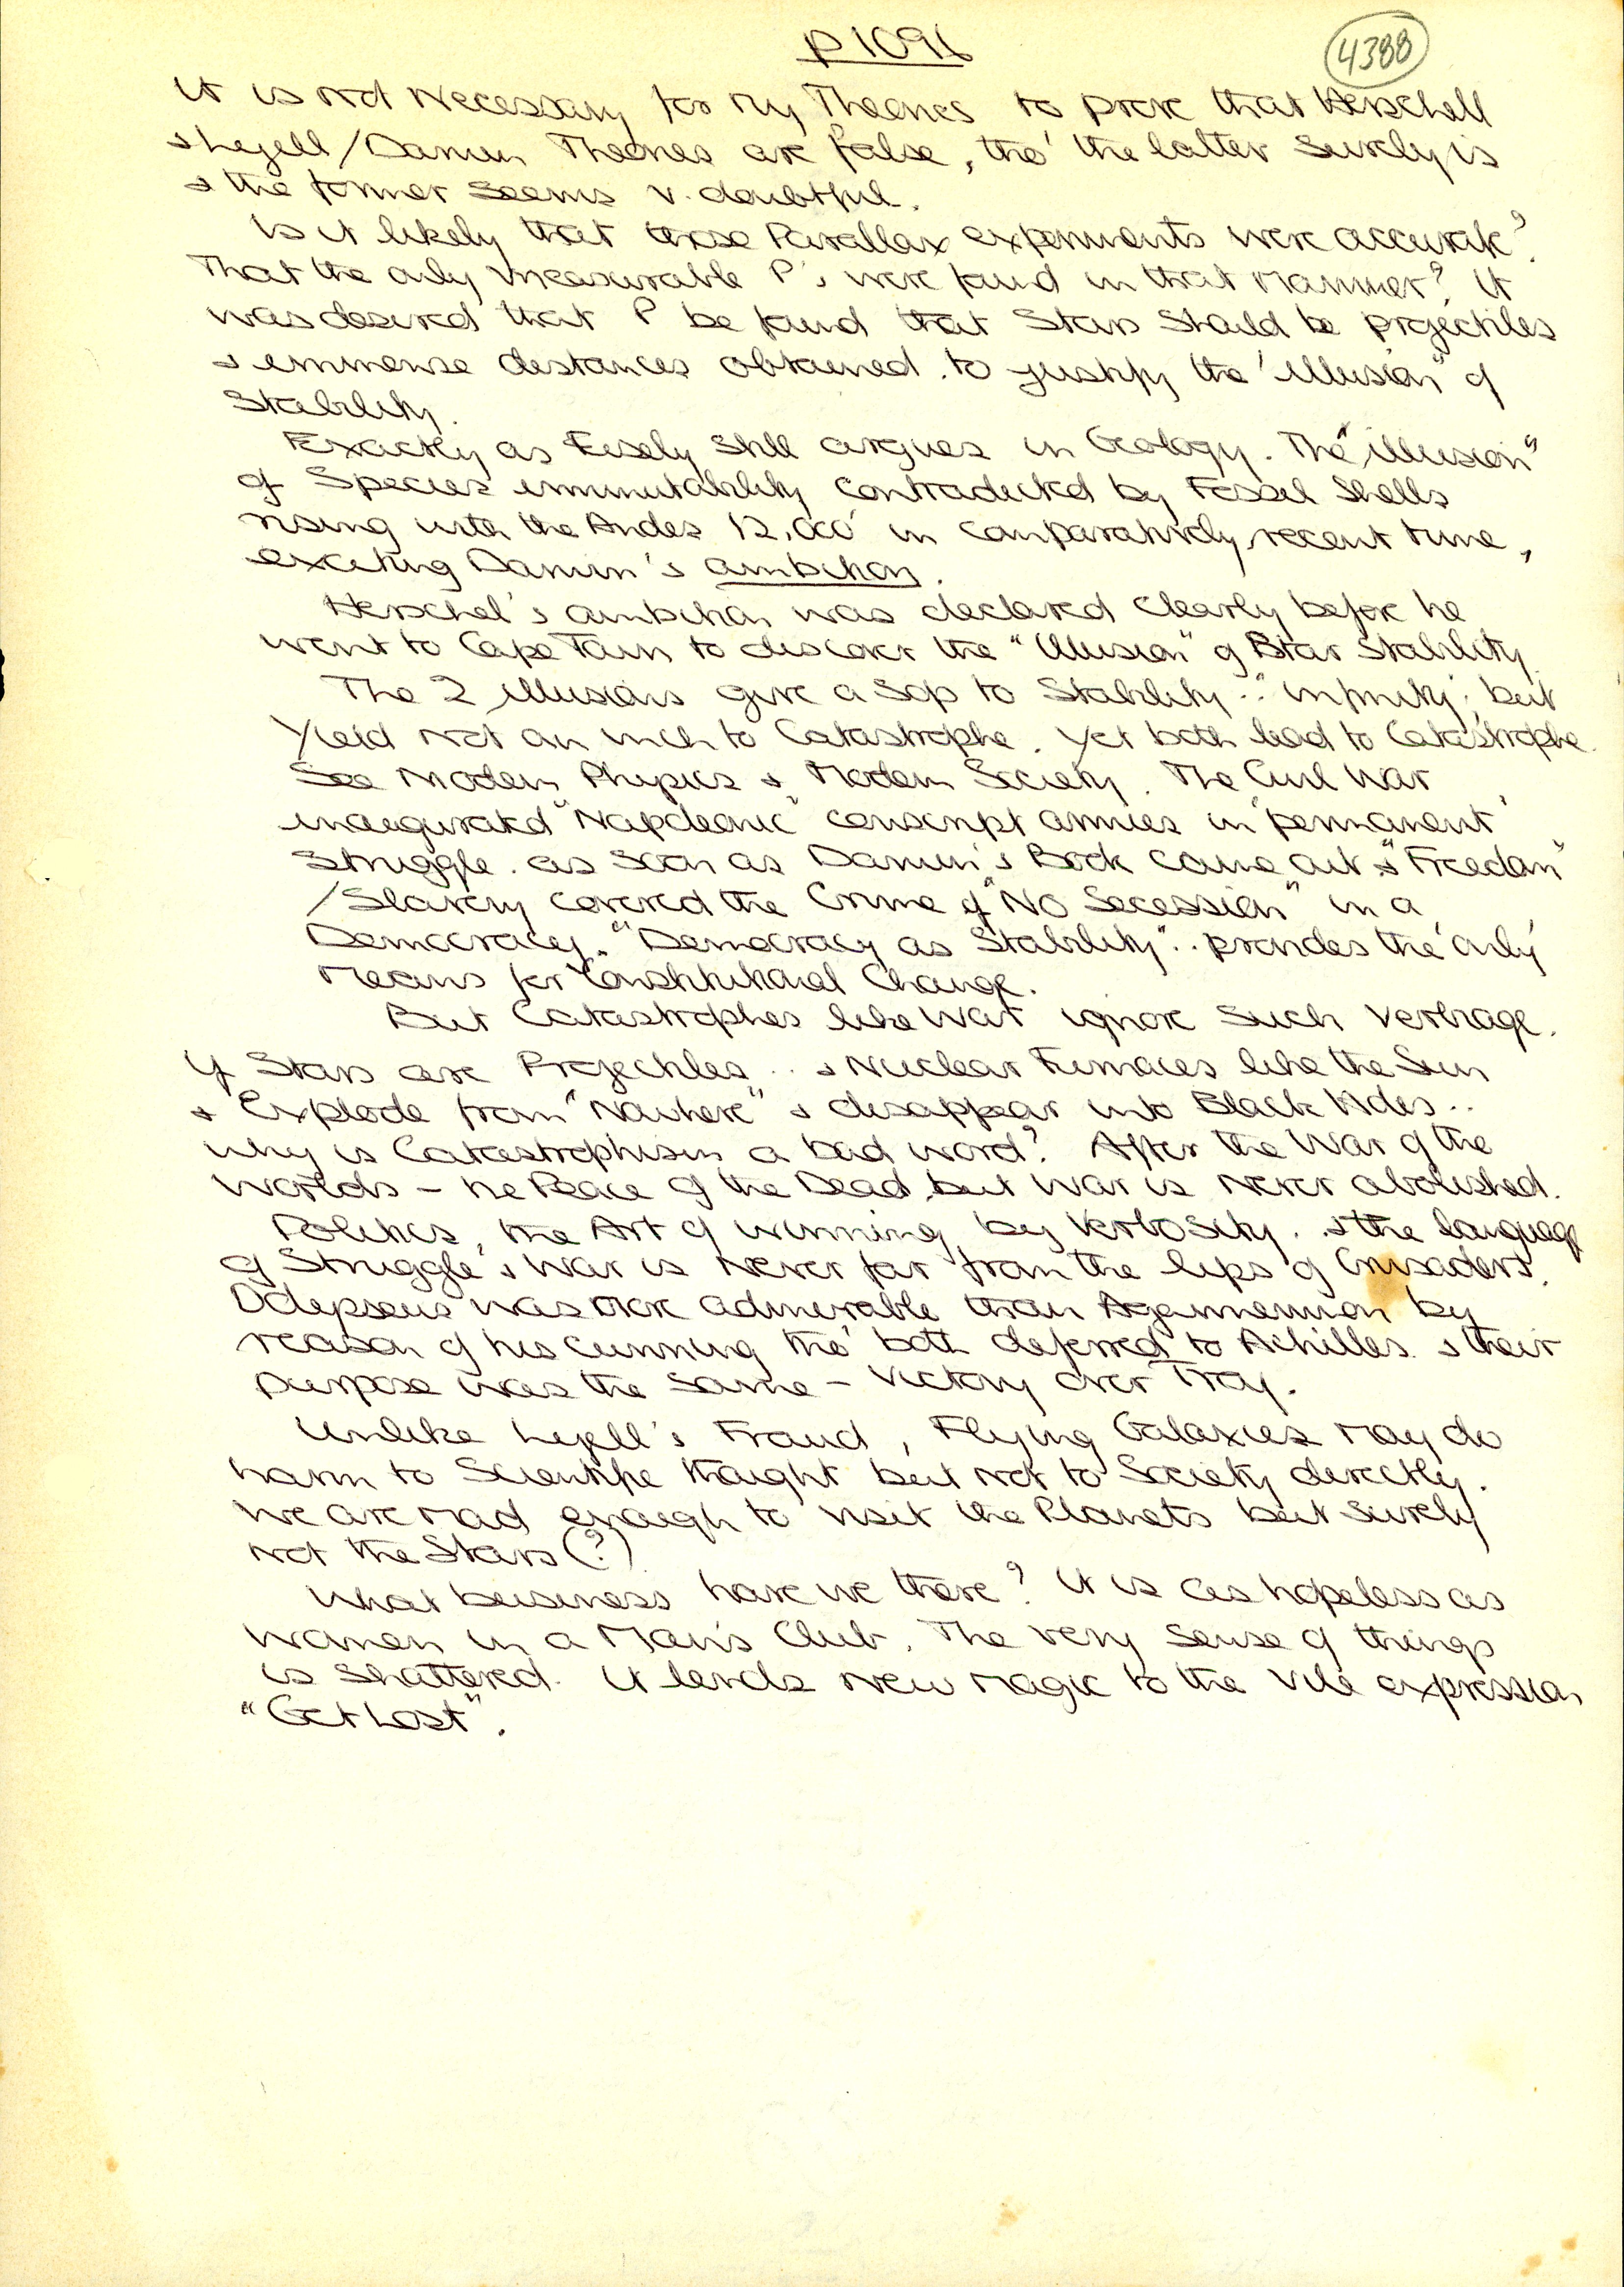 p 1091
4388
It is not Necessary for my Theories to prove that Herschell
& Lyell/Darwin Theories are false, tho' the latter surely is
& the former seems v. doubtful.
Is it likely that those Parallax experiments were accurate?
That the only measurable P's were found in that manner? It
was desired that P be found that Stars should be projectiles
& immense distances obtained. to justify the "illusion" of
Stability.
Exactly as Eisely still argues in Geology. The "illusion"
of Species immutability contradicted by Fossil Shells
rising with the Andes 12,000' in comparatively recent time,
exciting Darwin's ambition.
Herschel's ambition was declared clearly before he
went to Cape Town to discover the "Illusion" of Star Stability
The 2 illusions give a Sop to Stability .. infinity, but
Yield not an inch to Catastrophe. Yet both lead to Catastrophe.
See Modern Physics & Modern Society. The Civil War
inaugurated "Napoleonic" conscript armies in "permanent"
struggle. as soon as Darwin's Book came out & "Freedom"
/Slavery covered the Crime of "No Secession" in a
Democracy. "Democracy as Stability" .. provides the 'only'
Means for Constitutional Change.
But Catastrophes like War ignore such Verbiage.
If Stars are Projectiles .. & Nuclear Furnaces like the Sun
& Explode from "Nowhere" & disappear into Black Holes ..
why is Catastrophism a bad word? After the War of the
Worlds – the Peace of the Dead, but War is Never abolished.
Politics, the Art of winning by Verbosity. & the language
of Struggle & War is Never far from the lips of Crusaders.
Odepseus was more admirable than Agamemnon by
reason of his cunning tho' both deferred to Achilles. & their
purpose was the same – Victory over Troy.
Unlike Lyell's Fraud, Flying Galaxies may do
harm to Scientific thought but not to Society directly.
We are mad enough to visit the Planets but surely
not the Stars (?)
What business have we there? It is as hopeless as
women in a Man's Club. The very sense of things
is shattered. It lends New Magic to the Vile expression
"Get Lost".